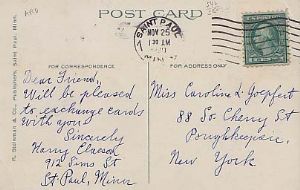 POST CARD
SAINT PAUL
NOV 25
130 AM
MINN.
FOR CORRESPONDENCE
FOR ADDRESS
Dear Friend,
Will be pleased
to exchange cards
with you.
Sincerely
Harry
912 Sims St
St Paul, Minn
Miss Caroline L. Goepfert
88 So Cherry St
Poughkeepsie,
New York